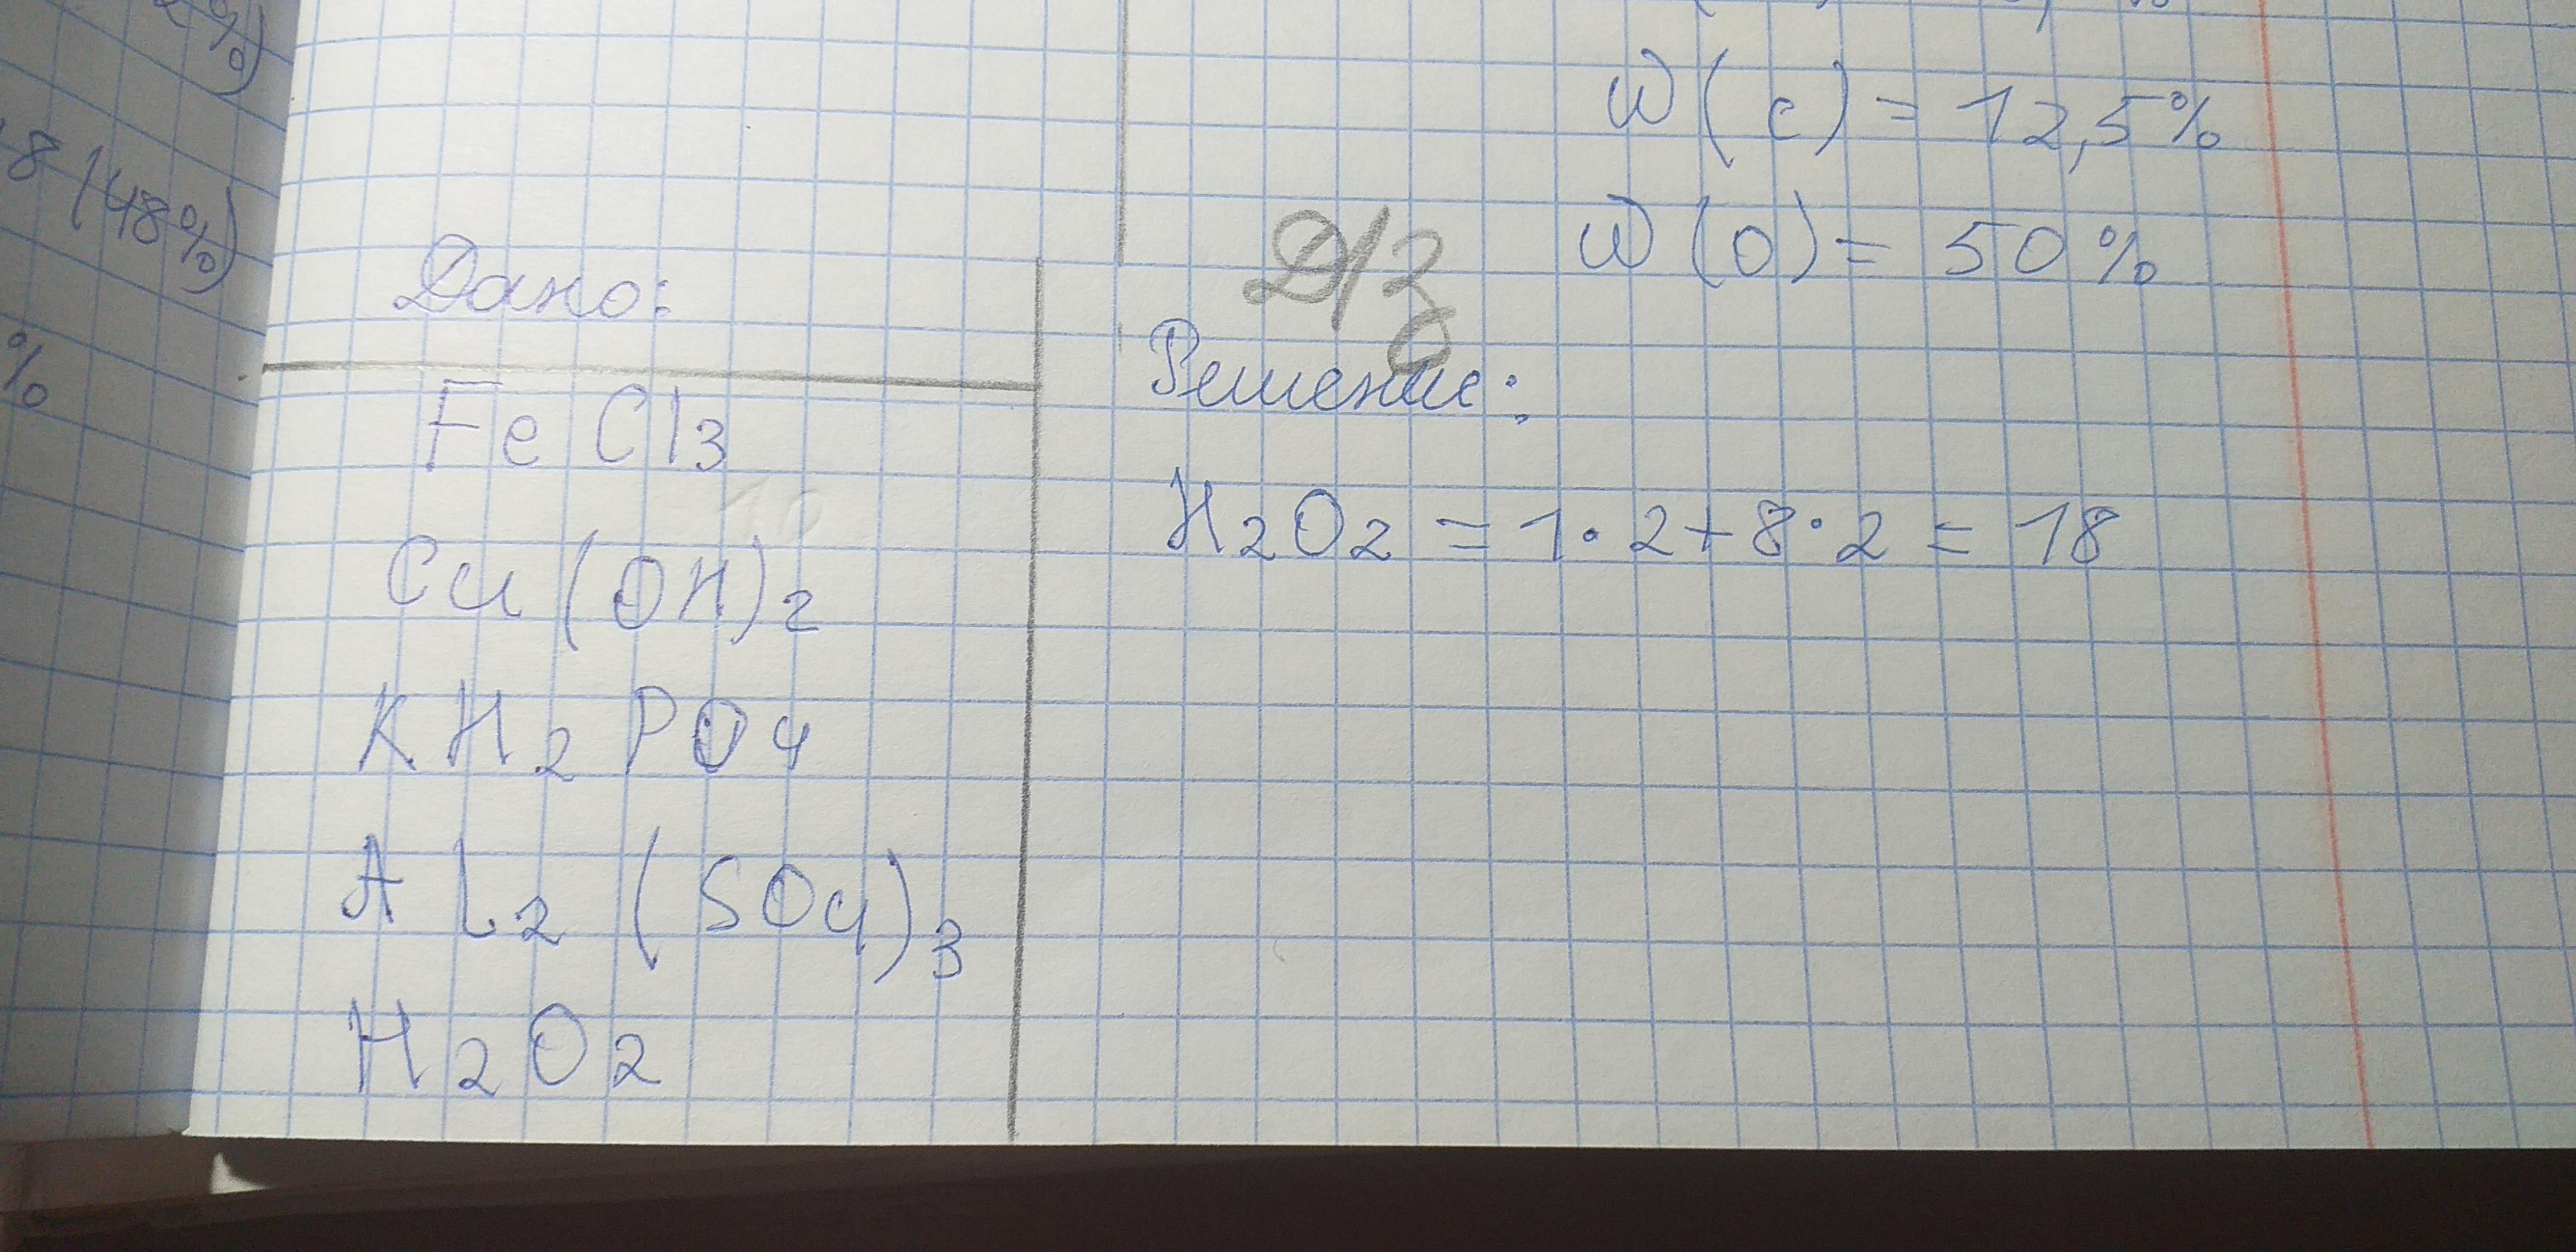 8 (48%)
%
W(c) = 12,5%
W(O) = 50%
Д/з
Дано:
FeCl3
Cu(OH)2
KH2PO4
Al2(SO4)3
H2O2
Решение:
H2O2 = 1·2+8·2 = 18